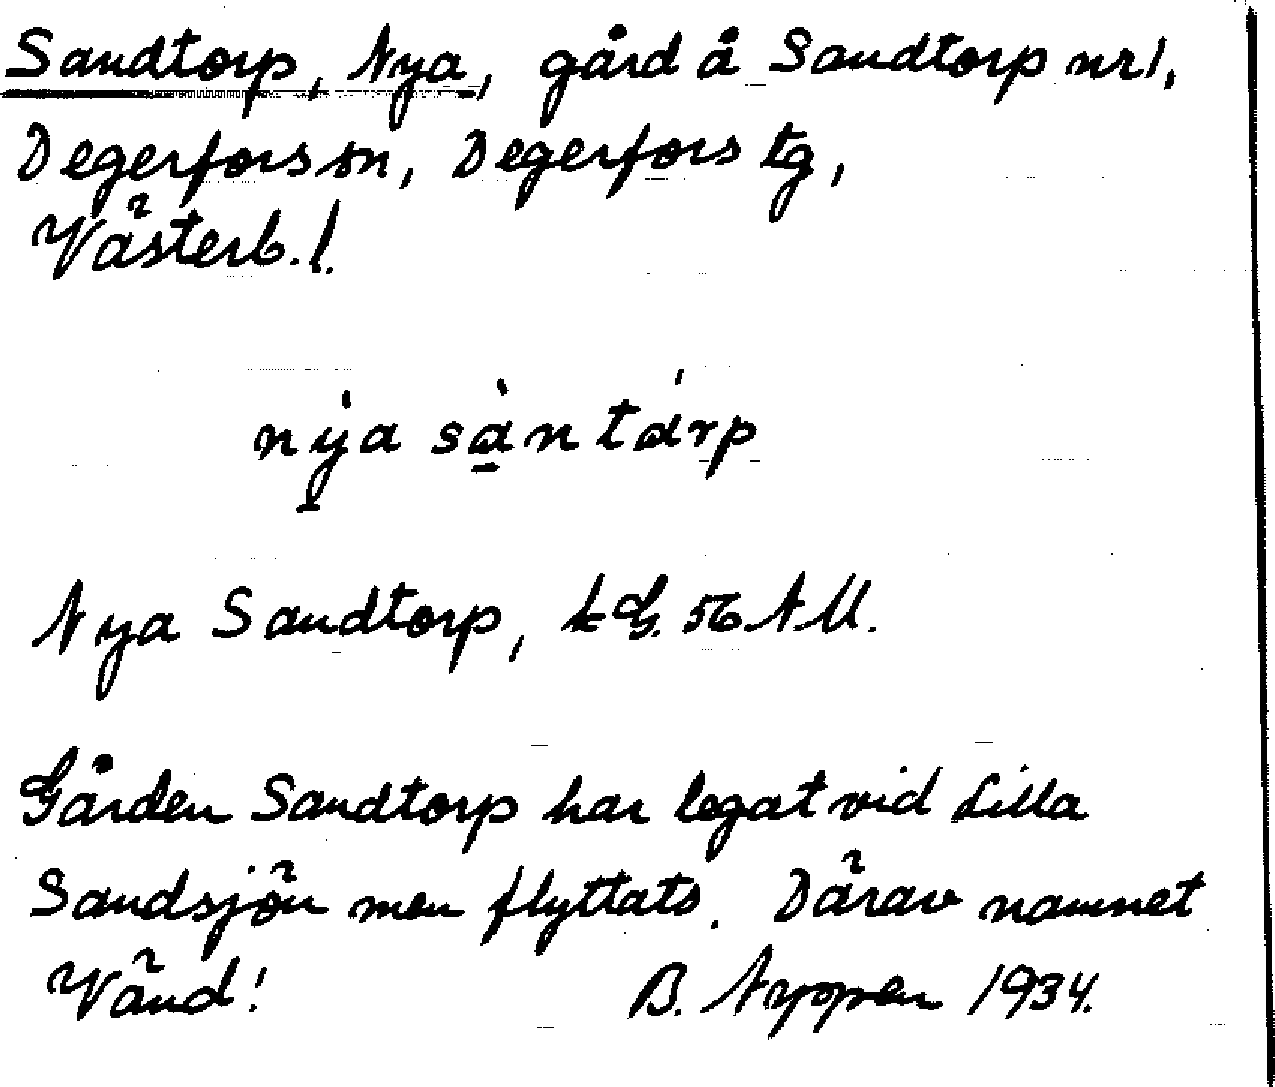 Sandtorp, Nya, gård å Sandtorp nr 1,
Degerfors sn, Degerfors tg,
Västerb. l.
nya santarp
Nya Sandtorp, kG. 56 NU.
Gården Sandtorp har legat vid Lilla
Sandsjön men flyttats. Därav namnet
Vänd! B. Nyppen 1934.